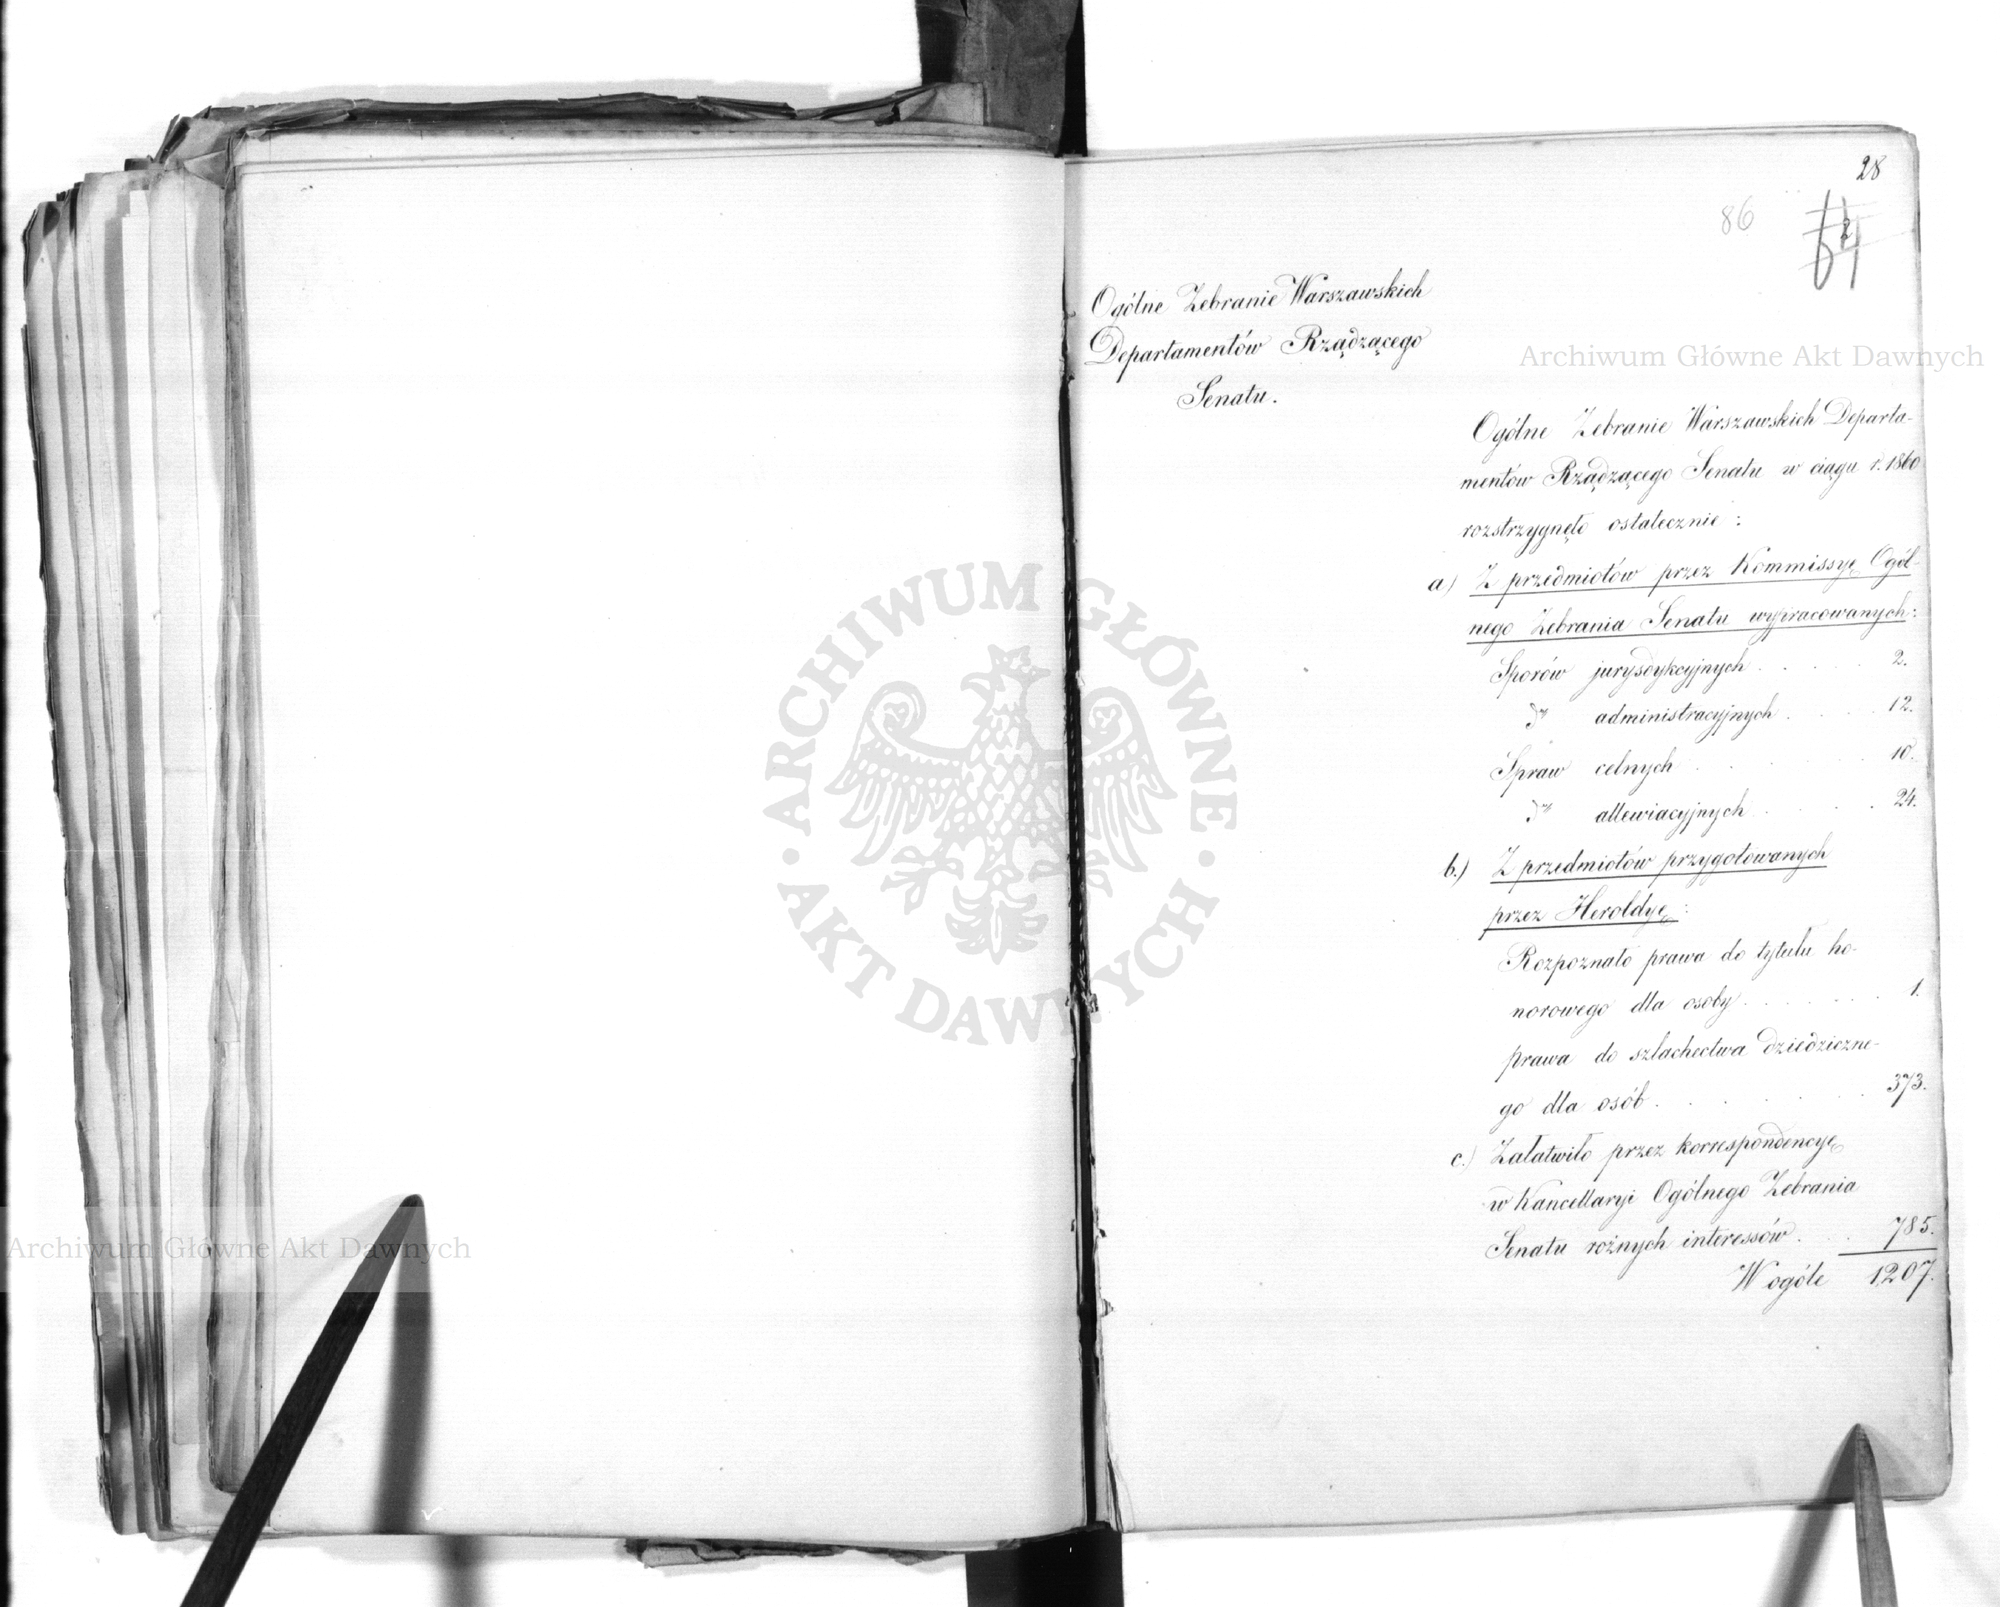 28
86
Ogólne Zebranie Warszawskich
Departamentów Rządzącego
Senatu.
Archiwum Główne Akt Dawnych
Ogólne Zebranie Warszawskich Departa-
mentów Rządzącego Senatu w ciągu r. 1860
rozstrzygnęło ostatecznie:
a) Z przedmiotów przez Kommissyę Ogól-
nego Zebrania Senatu wypracowanych:
Sporów jurysdykcyjnych . . . . . 2.
do administracyjnych . . . . . 12.
Spraw celnych . . . . . 10.
do allewiacyjnych . . . . . 24.
b.) Z przedmiotów przygotowanych
przez Heroldyę:
Rozpoznało prawa do tytułu ho-
norowego dla osoby . . . . . . . 1.
prawa do szlachectwa dziedziczne-
go dla osób . . . . . . . 373.
c.) Załatwiło przez korrespondencyę
w Kancellaryi Ogólnego Zebrania
Senatu rożnych interessów . . . 785.
W ogóle 1207.
ARCHIWUM GŁÓWNE
AKT DAWNYCH
Archiwum Główne Akt Dawnych